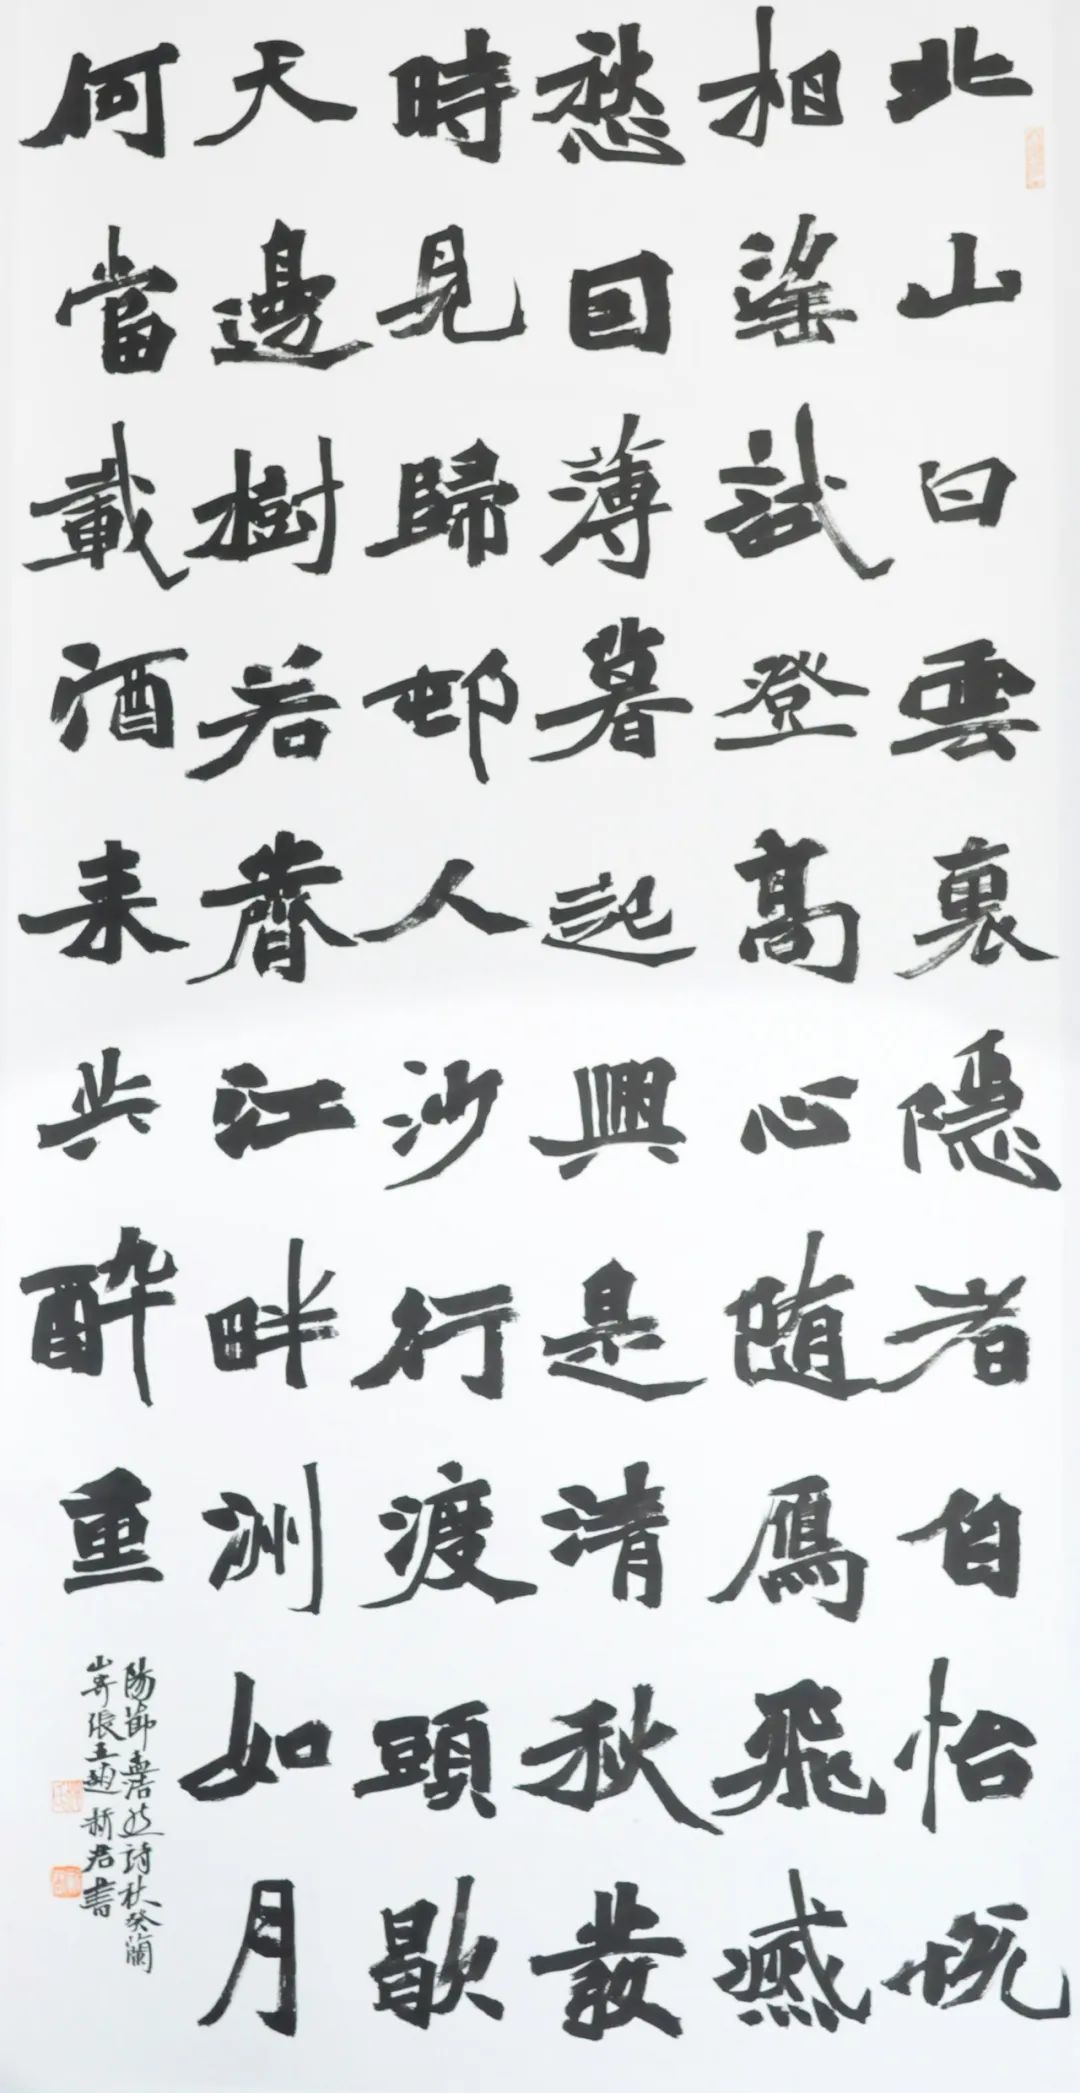 北山白雲裏隱者自怡悦
相望試登高心随鴈飛滅
愁因薄暮起興是清秋發
時見歸邨人沙行渡頭歇
天邊樹若薺江畔洲如月
何當載酒来共醉重
陽節孟浩然詩秋登蘭
山寄張五趙新君書